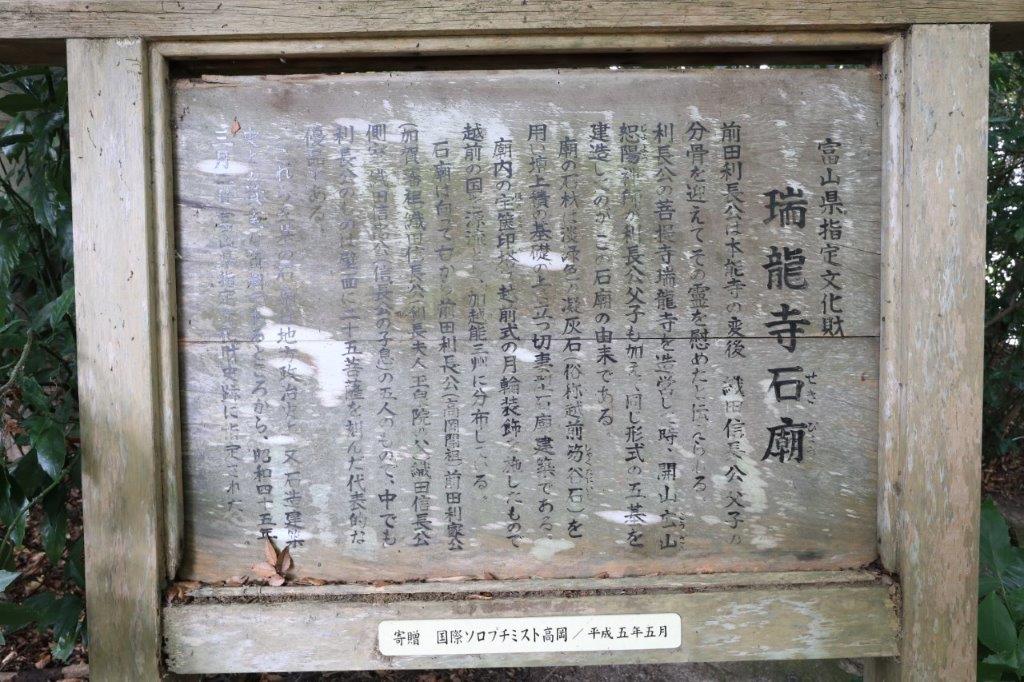 富山県指定文化財
瑞龍寺石廟
せき びょう
前田利長公は本能寺の変後 織田信長公父子の
分骨を迎えてその霊を慰めたと伝えられる
利長公の菩提寺瑞龍寺を造営した時、開山広山
こうざん
恕陽禅師が利長公父子も加え、同じ形式の五基を
じょよう
建造したのがこの石廟の由来である
廟の石材は淡緑色の凝灰石(俗称越前笏谷石)を
用い壇上積の基礎の上に立つ切妻型石廟建築である。
廟内の宝篋印塔は越前式の月輪装飾を施したもので
越前の国に源流し、加越能三州に分布している。
石廟は向って右から前田利長公(高岡開祖)前田利家公
(加賀藩祖)織田信長公(利長夫人玉泉院の父)織田信長公
側室 織田信忠公(信長公の子息)の五人のもので、中でも
利長公のものは壁面に二十五菩薩を刻んだ代表的な
優品である。
これら 石廟 地方政治史 又石造建築
ところから、昭和四十五年
三月 富山県指定 史跡に指定された
寄贈 国際ソロプチミスト高岡/平成五年五月